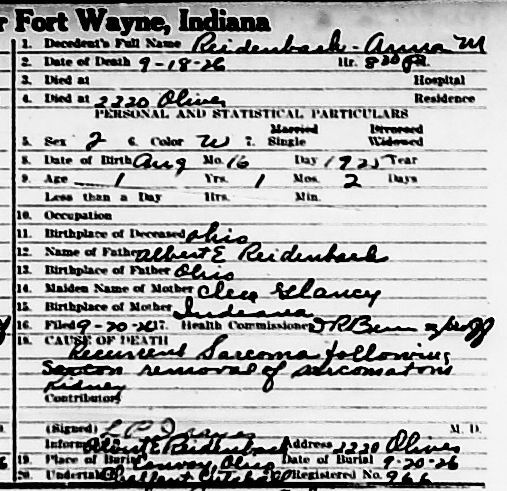 r Fort Wayne, Indiana
1. Decedent's Full Name Reidenback - Anna M
2. Date of Death 9-18-26 Hr. 8
3. Died at Hospital
4. Died at 2220 Olive Residence
PERSONAL AND STATISTICAL PARTICULARS
Married Divorced
5. Sex 6. Color W 7. Single Widowed
8. Date of Birth Aug Mo. 16 Day 1925 Year
9. Age 1 Yrs. 1 Mos. 2 Days
Less than a Day Hrs. Min.
10. Occupation
11. Birthplace of Deceased Ohio
12. Name of Father Albert E Reidenback
13. Birthplace of Father Ohio
14. Maiden Name of Mother Cleo Glancy
15. Birthplace of Mother Indiana
16. Filed 9-20-26 17. Health Commissioner
18. CAUSE OF DEATH
Recurrent Sarcoma following
removal of sarcomatous
Kidney
Contributory
(Signed) M. D.
Informant Albert E Reidenback Address 2220 Olive
19. Place of Burial Convoy, Ohio Date of Burial 9-20-26
20. Undertaker Registered No. 966